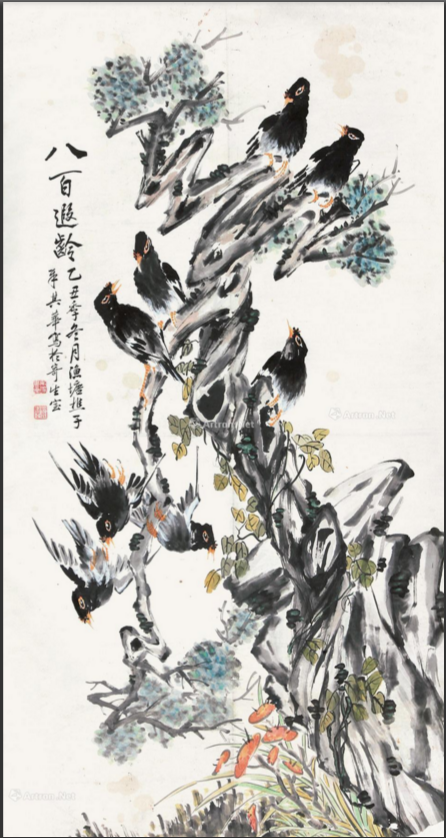 八百遐龄
乙丑季冬月渔塘樵子
李其华写於寄生室
Artron.Net
Artron.Net
Artron.Net